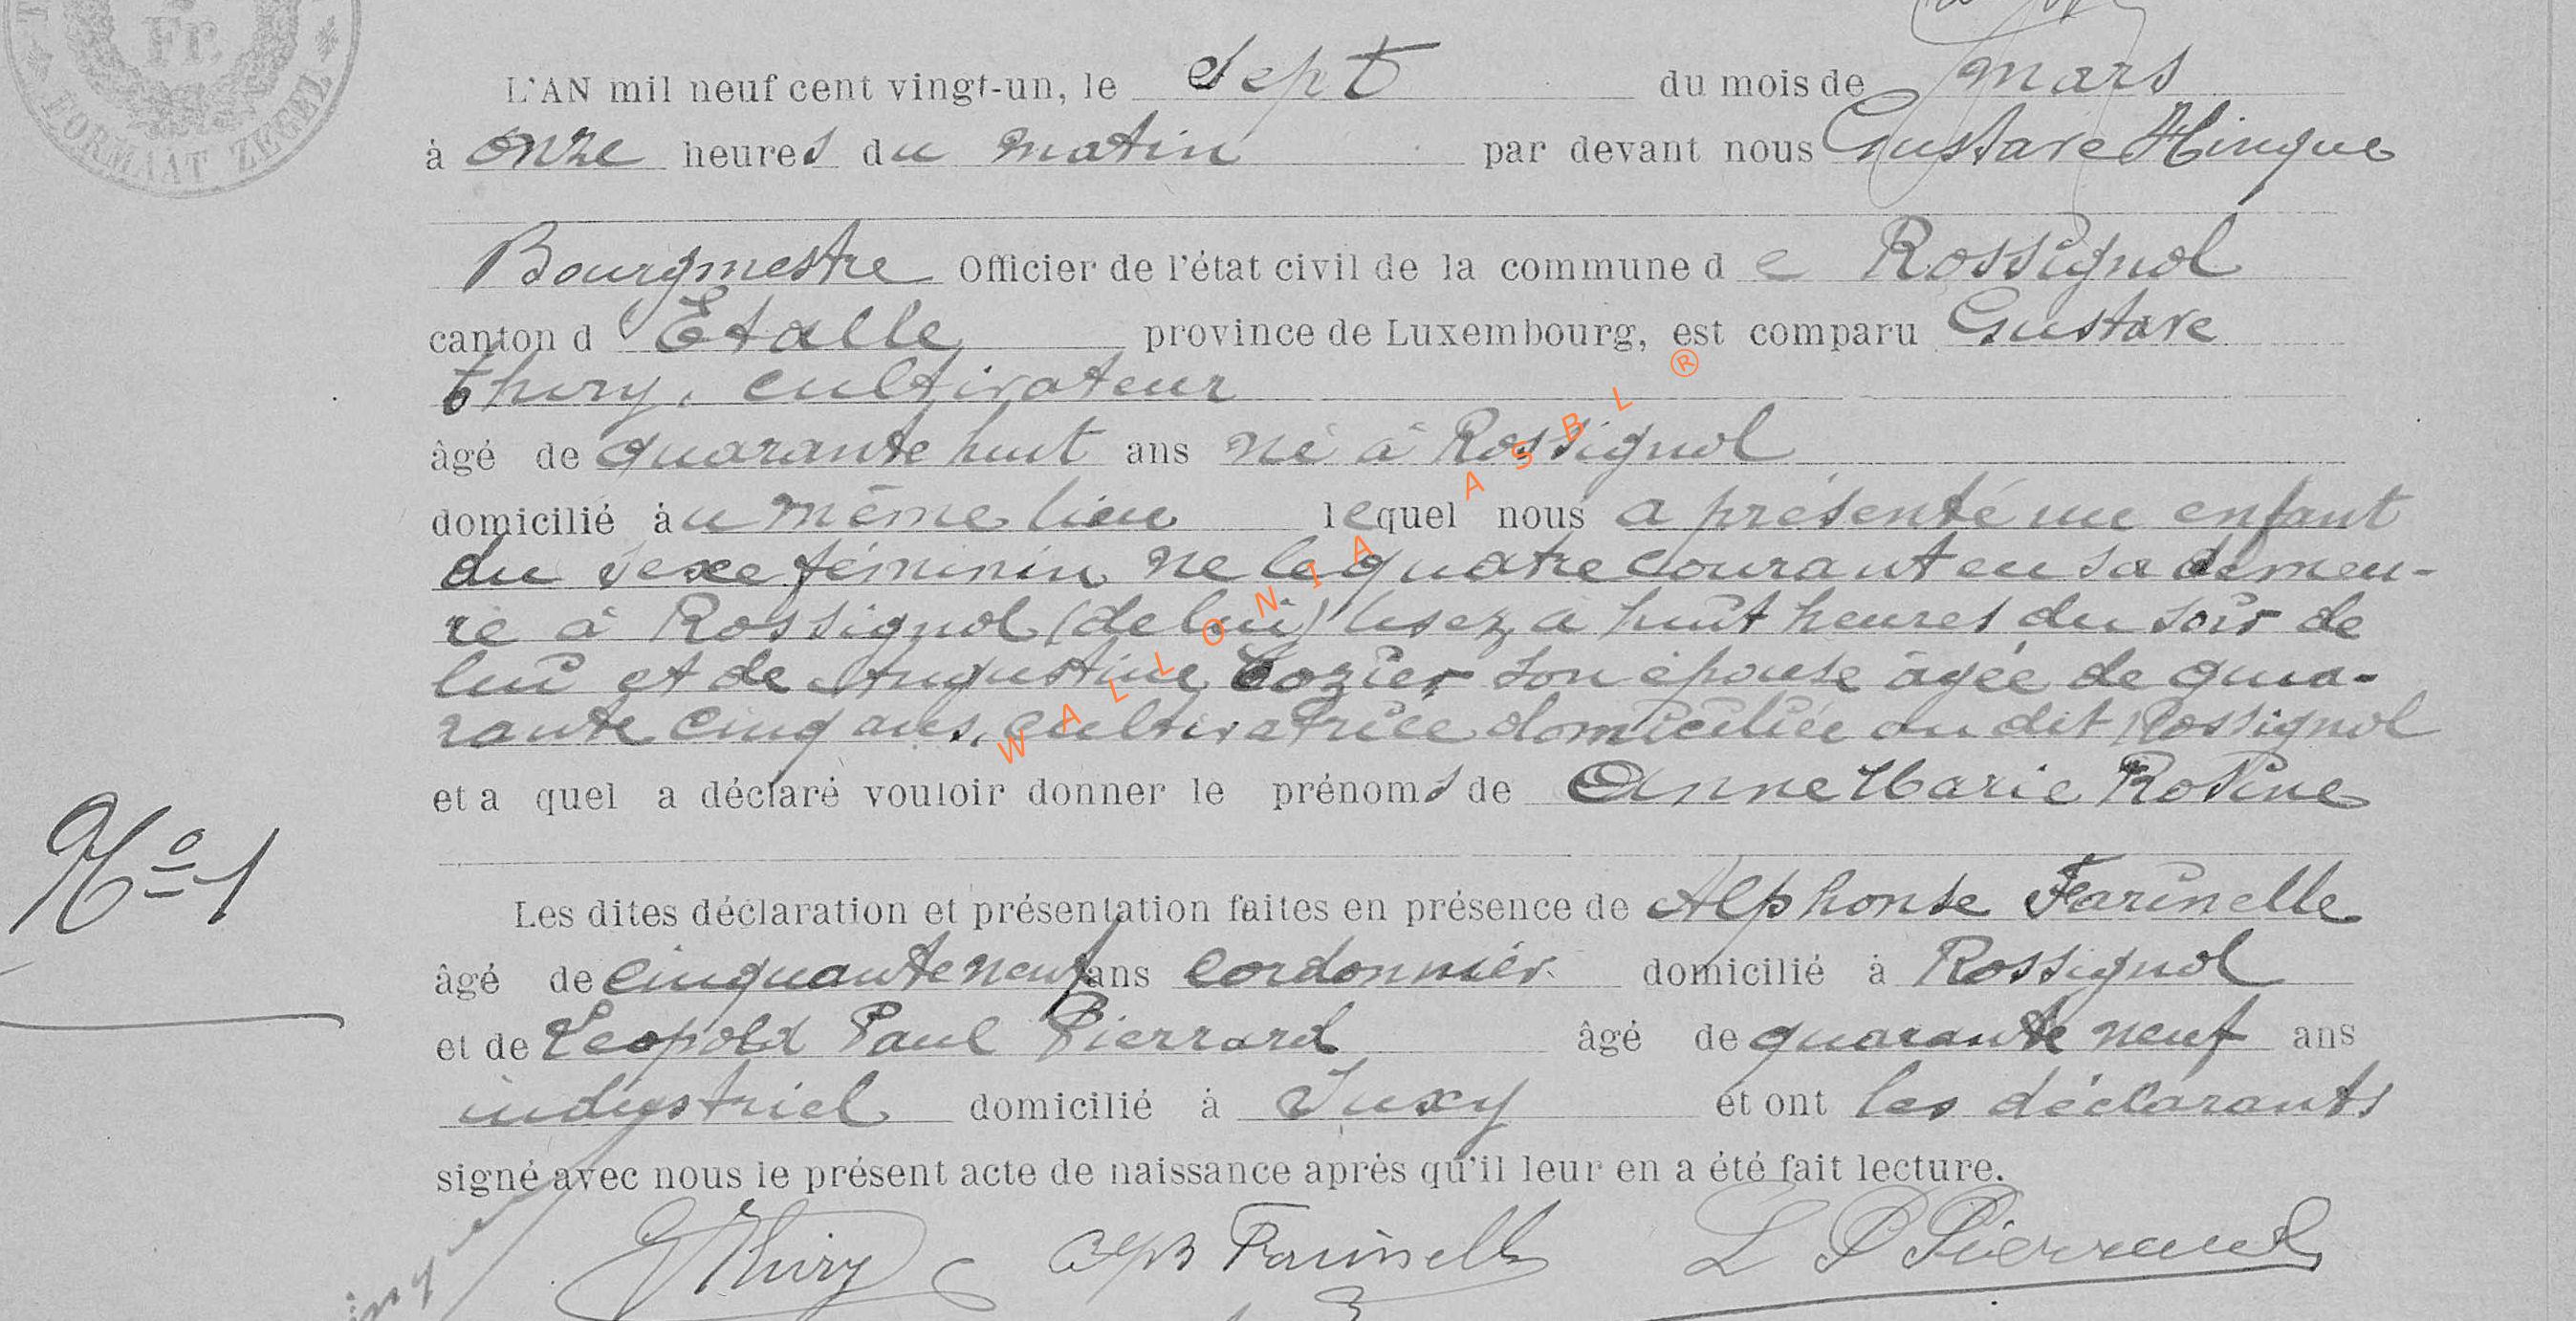 Fr.
FORMAAT ZEGEL
L'AN mil neuf cent vingt-un, le sept du mois de mars
à onze heures du matin par devant nous Gustave Hinque
Bourgmestre Officier de l'état civil de la commune de Rossignol
canton d'Etalle province de Luxembourg, est comparu Gustave
Thiry, cultivateur
âgé de quarante huit ans né à Rossignol
domicilié au même lieu lequel nous a présenté un enfant
du sexe féminin né le quatre courant en sa demeu-
re à Rossignol (de lui) lisez, à huit heures du soir de
lui et de Augustine Rozier son épouse âgée de qua-
rante cinq ans, cultivatrice domiciliée au dit Rossignol
et a quel a déclaré vouloir donner le prénoms de Anne Marie Rosine
No 1
Les dites déclaration et présentation faites en présence de Alphonse Farinelle
âgé de cinquante neuf ans cordonnier domicilié à Rossignol
et de Léopold Paul Pierrard âgé de quarante neuf ans
industriel domicilié à Suxy et ont les déclarants
signé avec nous le présent acte de naissance après qu'il leur en a été fait lecture.
GThiry Alph Farinelle L P Pierrard
WALLONIA ASBL ®